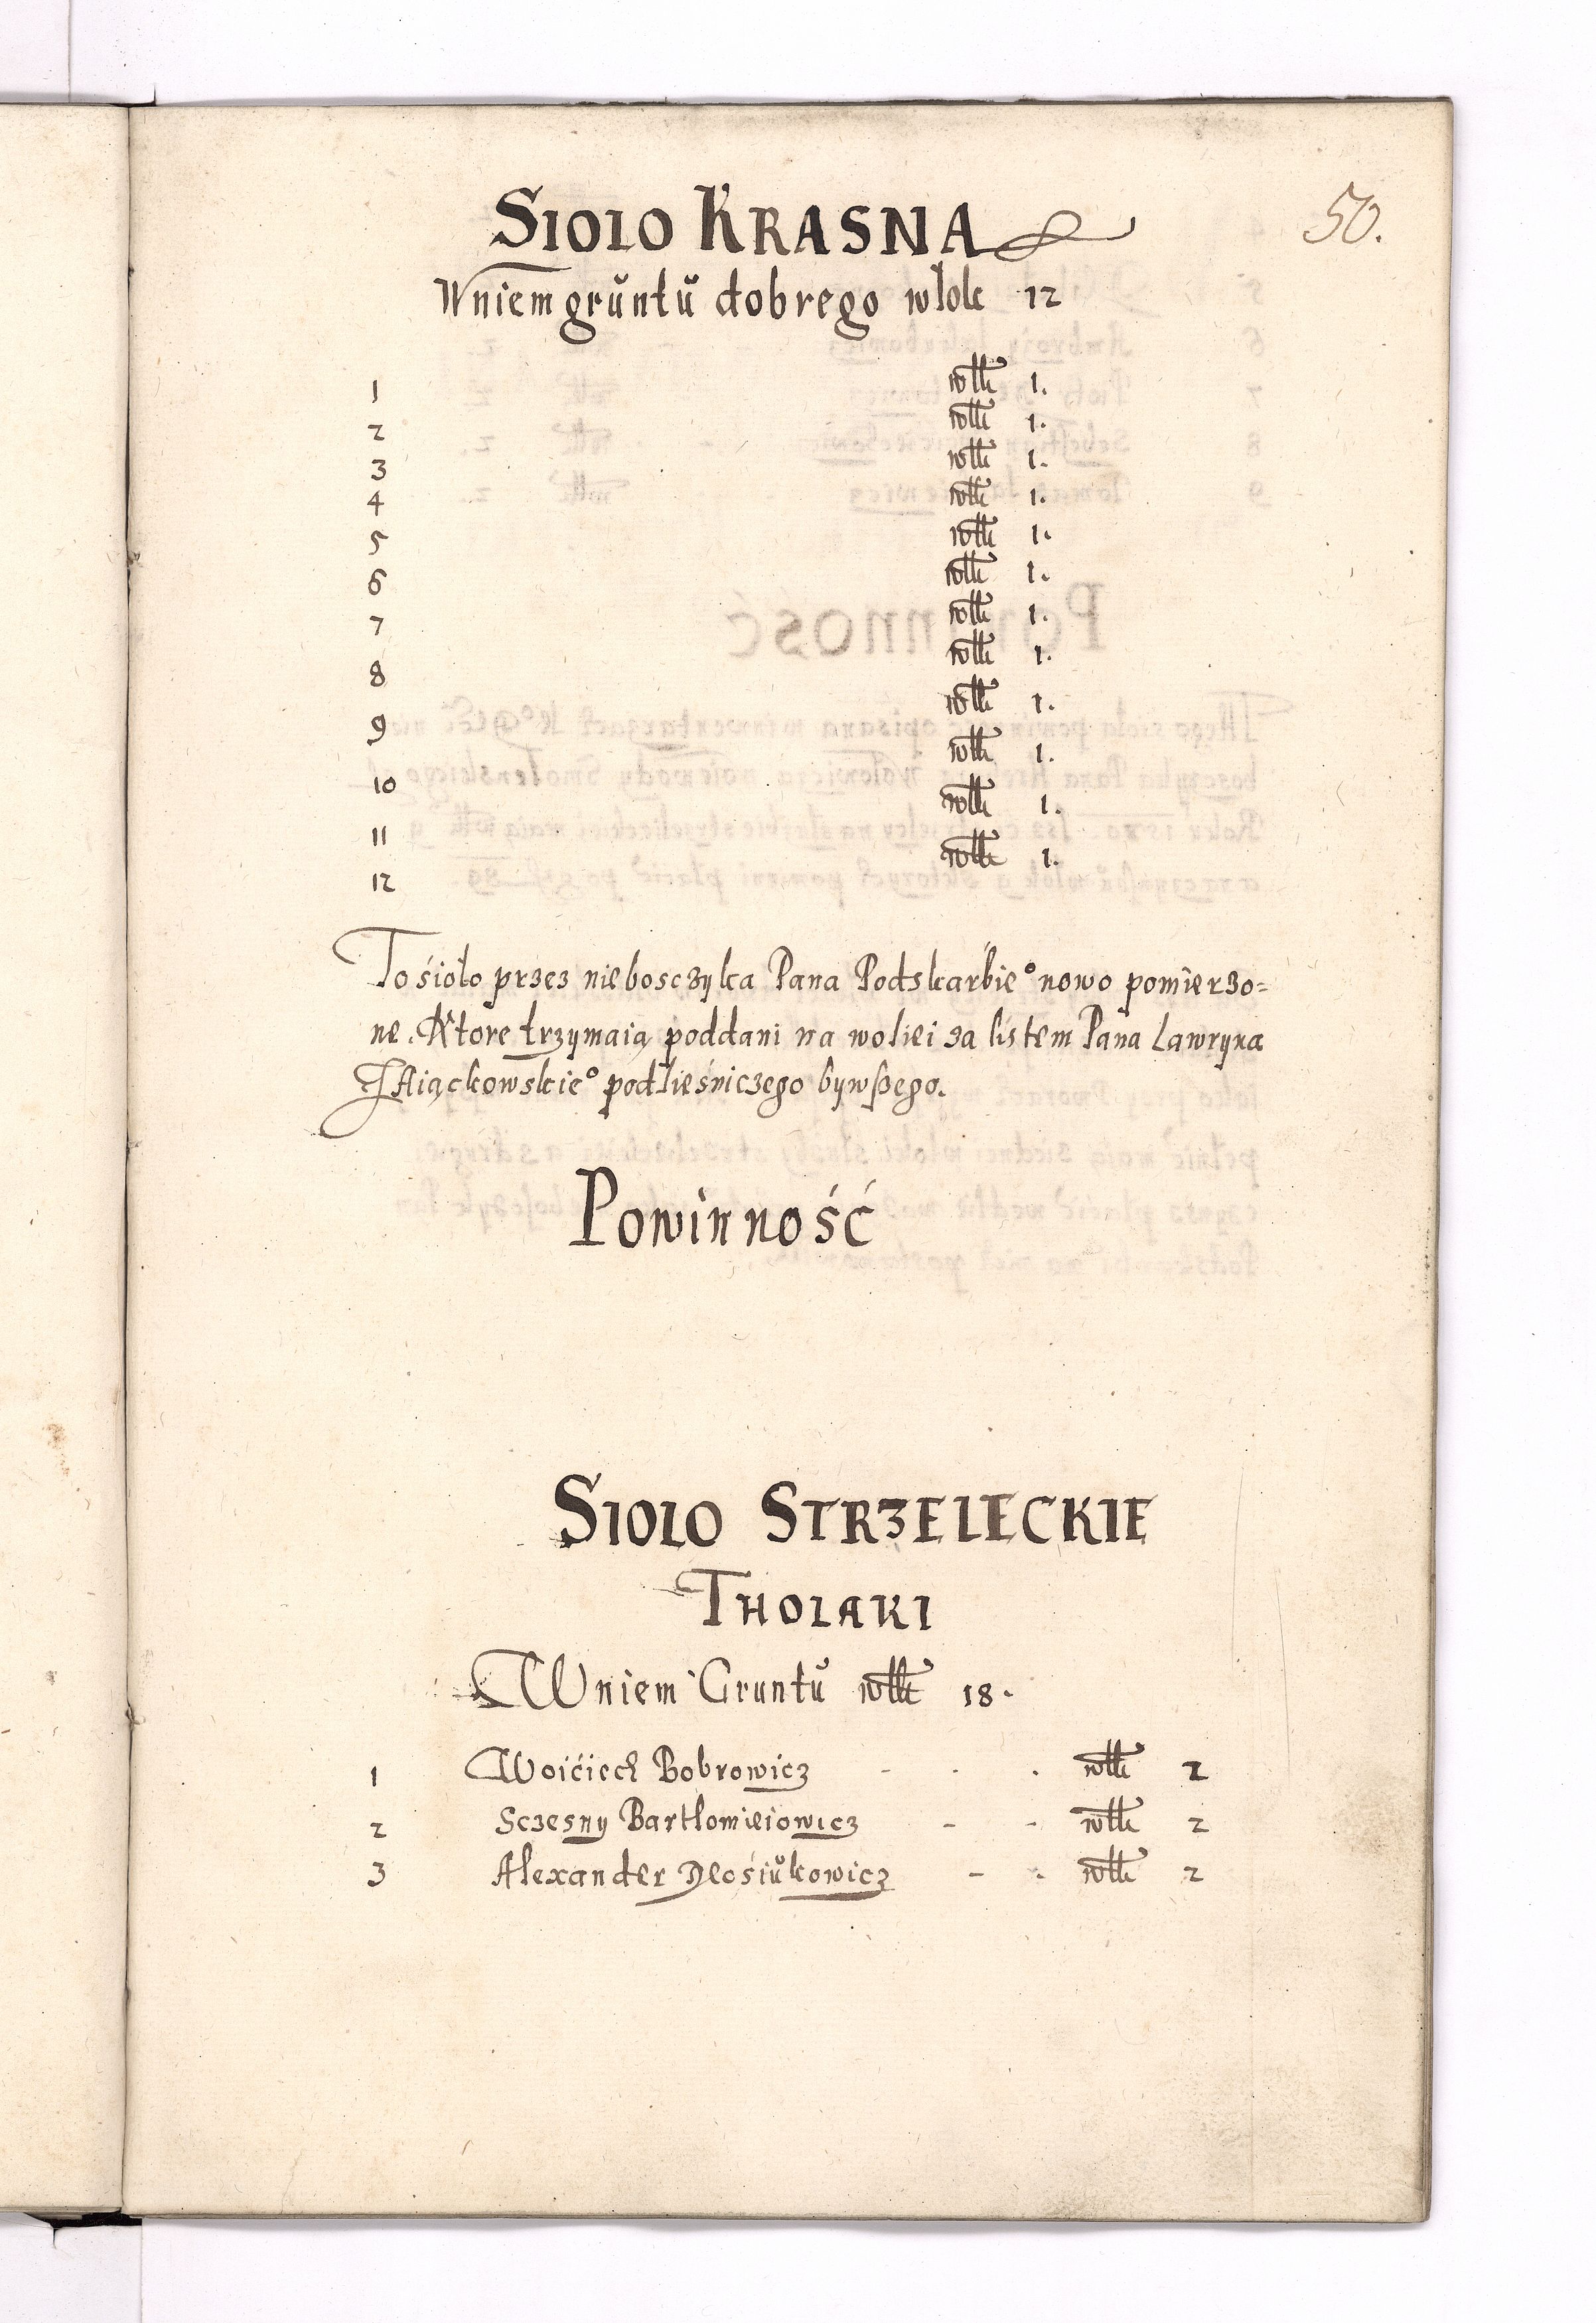 50.
SIOLO KRASNA
W niem grŭntŭ dobrego wlok 12
1 włk 1.
2 włk 1.
3 włk 1.
4 włk 1.
5 włk 1.
6 włk 1.
7 włk 1.
8 włk 1.
9 włk 1.
10 włk 1.
11 włk 1.
12 włk 1.
To śioło przez niebosczyka Pana Podskarbieº nowo pomierzo=
ne. Ktore trzymaią poddani na woliei za listem Pana Lawryna
podlieśniczego bywszego.
Powinność
SIOLO STRZELECKIE
THOLAKI
W niem Gruntŭ włk 18.
1 Woićiech Bobrowicz - - . włk 2
2 Sczesny Bartłomieiowicz - - włk 2
3 Alexander - - włk 2